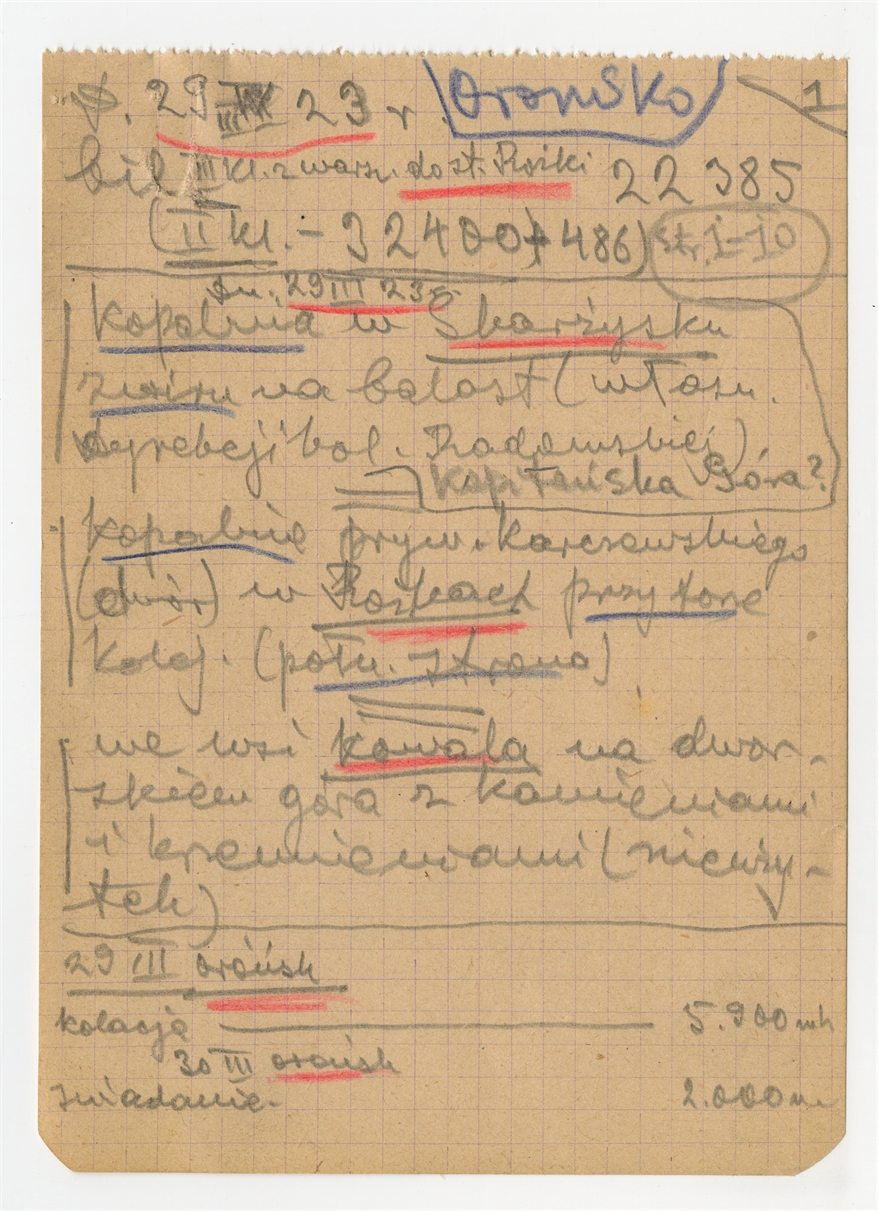 D. 29 III 23 r. Orońsko 1
bil III kl. z warsz. do st. Rożki 22385
(II kl. – 32400 + 486) str. 1–10
Dn. 29 III 23 r.
Kopalnia w Skarżysku
żwiru na balast (własn.
dyrekcji kol. Radomskiej)
Kapitańska Góra?
kopalnie pryw. Karczewskiego
(dwór) w Rożkach przy torze
kolej. (połu. strona)
we wsi Kowala na dwor-
skiem góra z kamieniami
i krzemieniami (nieuży-
tek)
29 III orońsk
kolacja 5.900 mk
30 III orońsk
śniadanie. 2.000 m